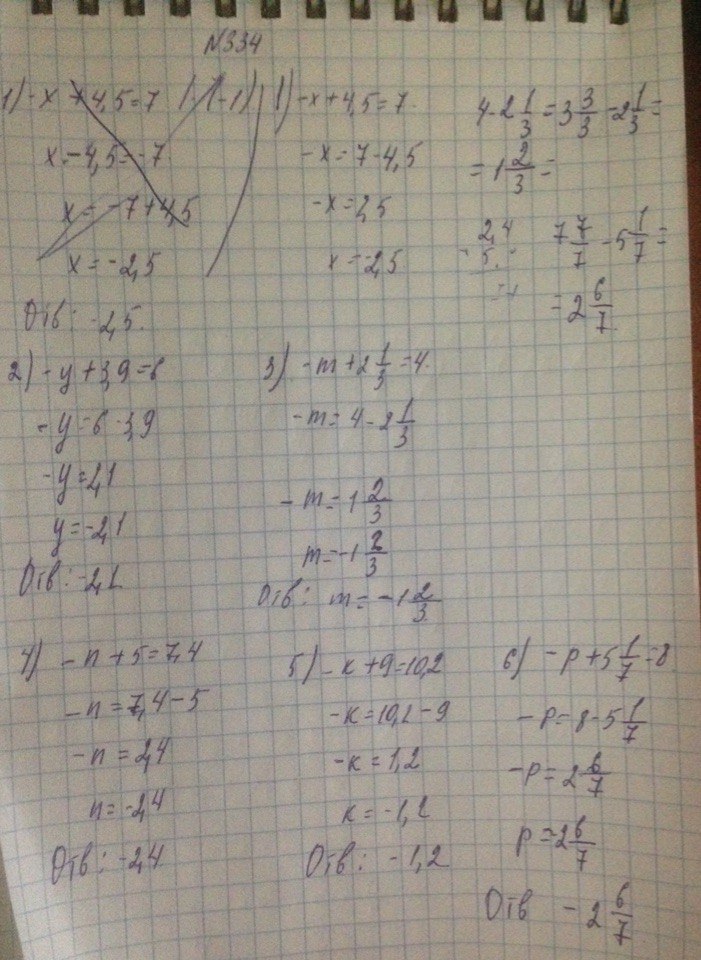 N334
1) -x+4,5=7 | · (-1)
x-4,5=-7
x=-7+4,5
x=-2,5
Отв: -2,5.
1) -x+4,5=7.
-x=7-4,5
-x=2,5
x=-2,5
4-2 1/3=3 3/3-2 1/3=
=1 2/3=
2,4
5.
7 7/7-5 1/7=
=2 6/7.
2) -y+3,9=6
-y=6-3,9
-y=2,1
y=-2,1
Отв: -2,1
3) -m+2 1/3=4.
-m=4-2 1/3
-m=1 2/3
m=-1 2/3
Отв: m=-1 2/3
4) -n+5=7,4
-n=7,4-5
-n=2,4
n=-2,4
Отв: -2,4
5) -к+9=10,2
-к=10,2-9
-к=1,2
к=-1,2
Отв: -1,2
6) -p+5 1/7=8
-p=8-5 1/7
-p=2 6/7
p=-2 6/7
Отв -2 6/7